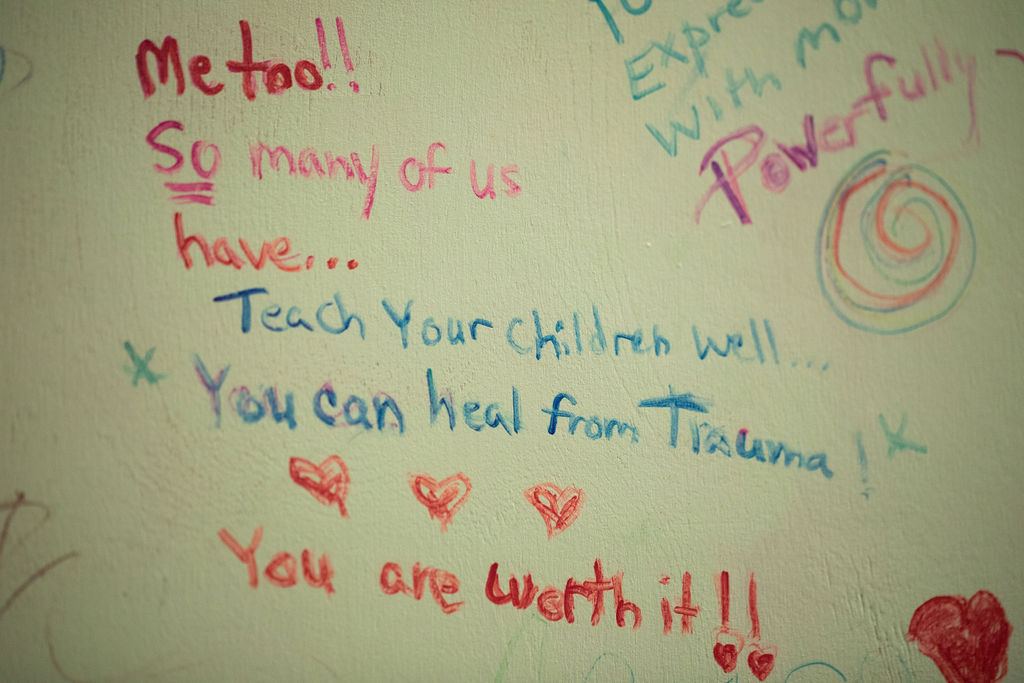 Me too!!
So many of us
have...
Teach Your children well...
You can heal from Trauma!
You are worth it!!
With
Powerfully